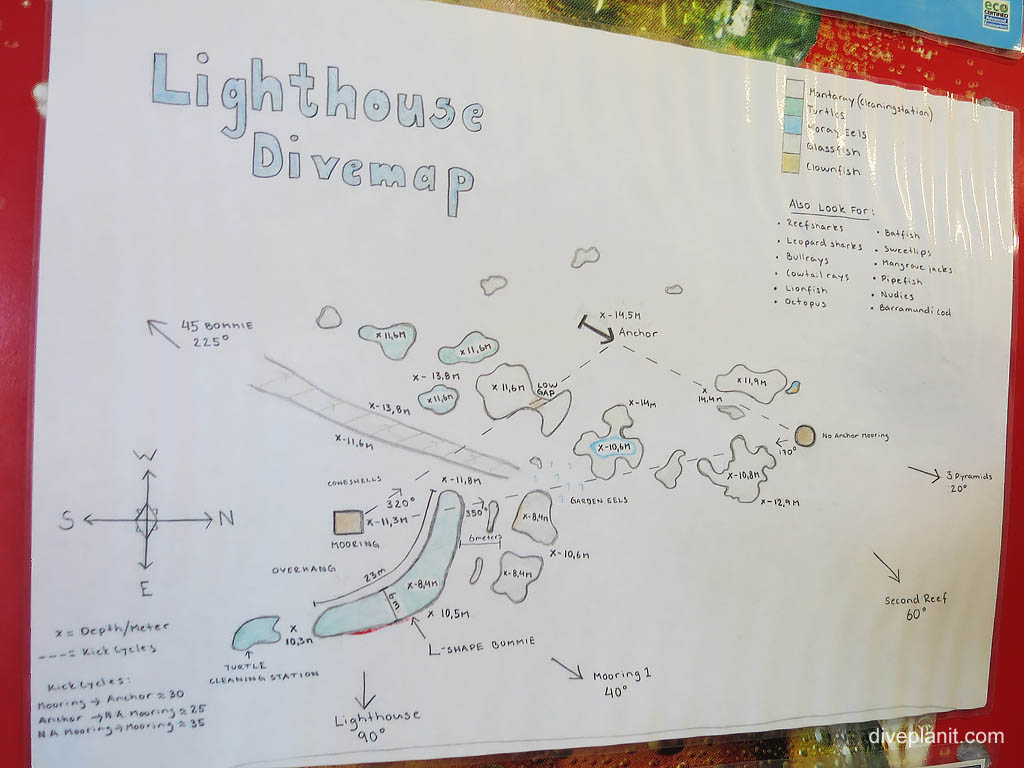 eco
CERTIFIED
Lighthouse
Divemap
Mantaray (cleaningstation)
Turtles
Moray Eels
Glassfish
Clownfish
Also Look For:
• Reefsharks
• Leopard sharks
• Bullrays
• Cowtail rays
• Lionfish
• Octopus
• Batfish
• Sweetlips
• Mangrove jacks
• Pipefish
• Nudies
• Barramundi cod
45 BOMMIE
225°
x-14,5m
Anchor
x 11,6m
x 11,6m
x-13,8m
x 11,6m
x 11,6m
LOW
GAP
x-13,8m
x-11,6m
x-14m
x-10,6m
x 11,9m
x
14,4m
No Anchor Mooring
170°
x-10,8m
x-12,9m
3 Pyramids
20°
GARDEN EELS
CONESHELLS
x-11,8m
320°
x-11,3m
MOORING
350°
6meters
x-8,4m
x-10,6m
x-8,4m
OVERHANG
23m
x-8,4m
6m
x 10,5m
L-SHAPE BOMMIE
x
10,3m
TURTLE
CLEANING STATION
Second Reef
60°
Mooring 1
40°
Lighthouse
90°
W
S
N
E
x = Depth/Meter
---= Kick Cycles
Kick Cycles:
Mooring → Anchor ≈ 30
Anchor → N.A. Mooring ≈ 25
N.A Mooring → Mooring ≈ 35
diveplanit.com